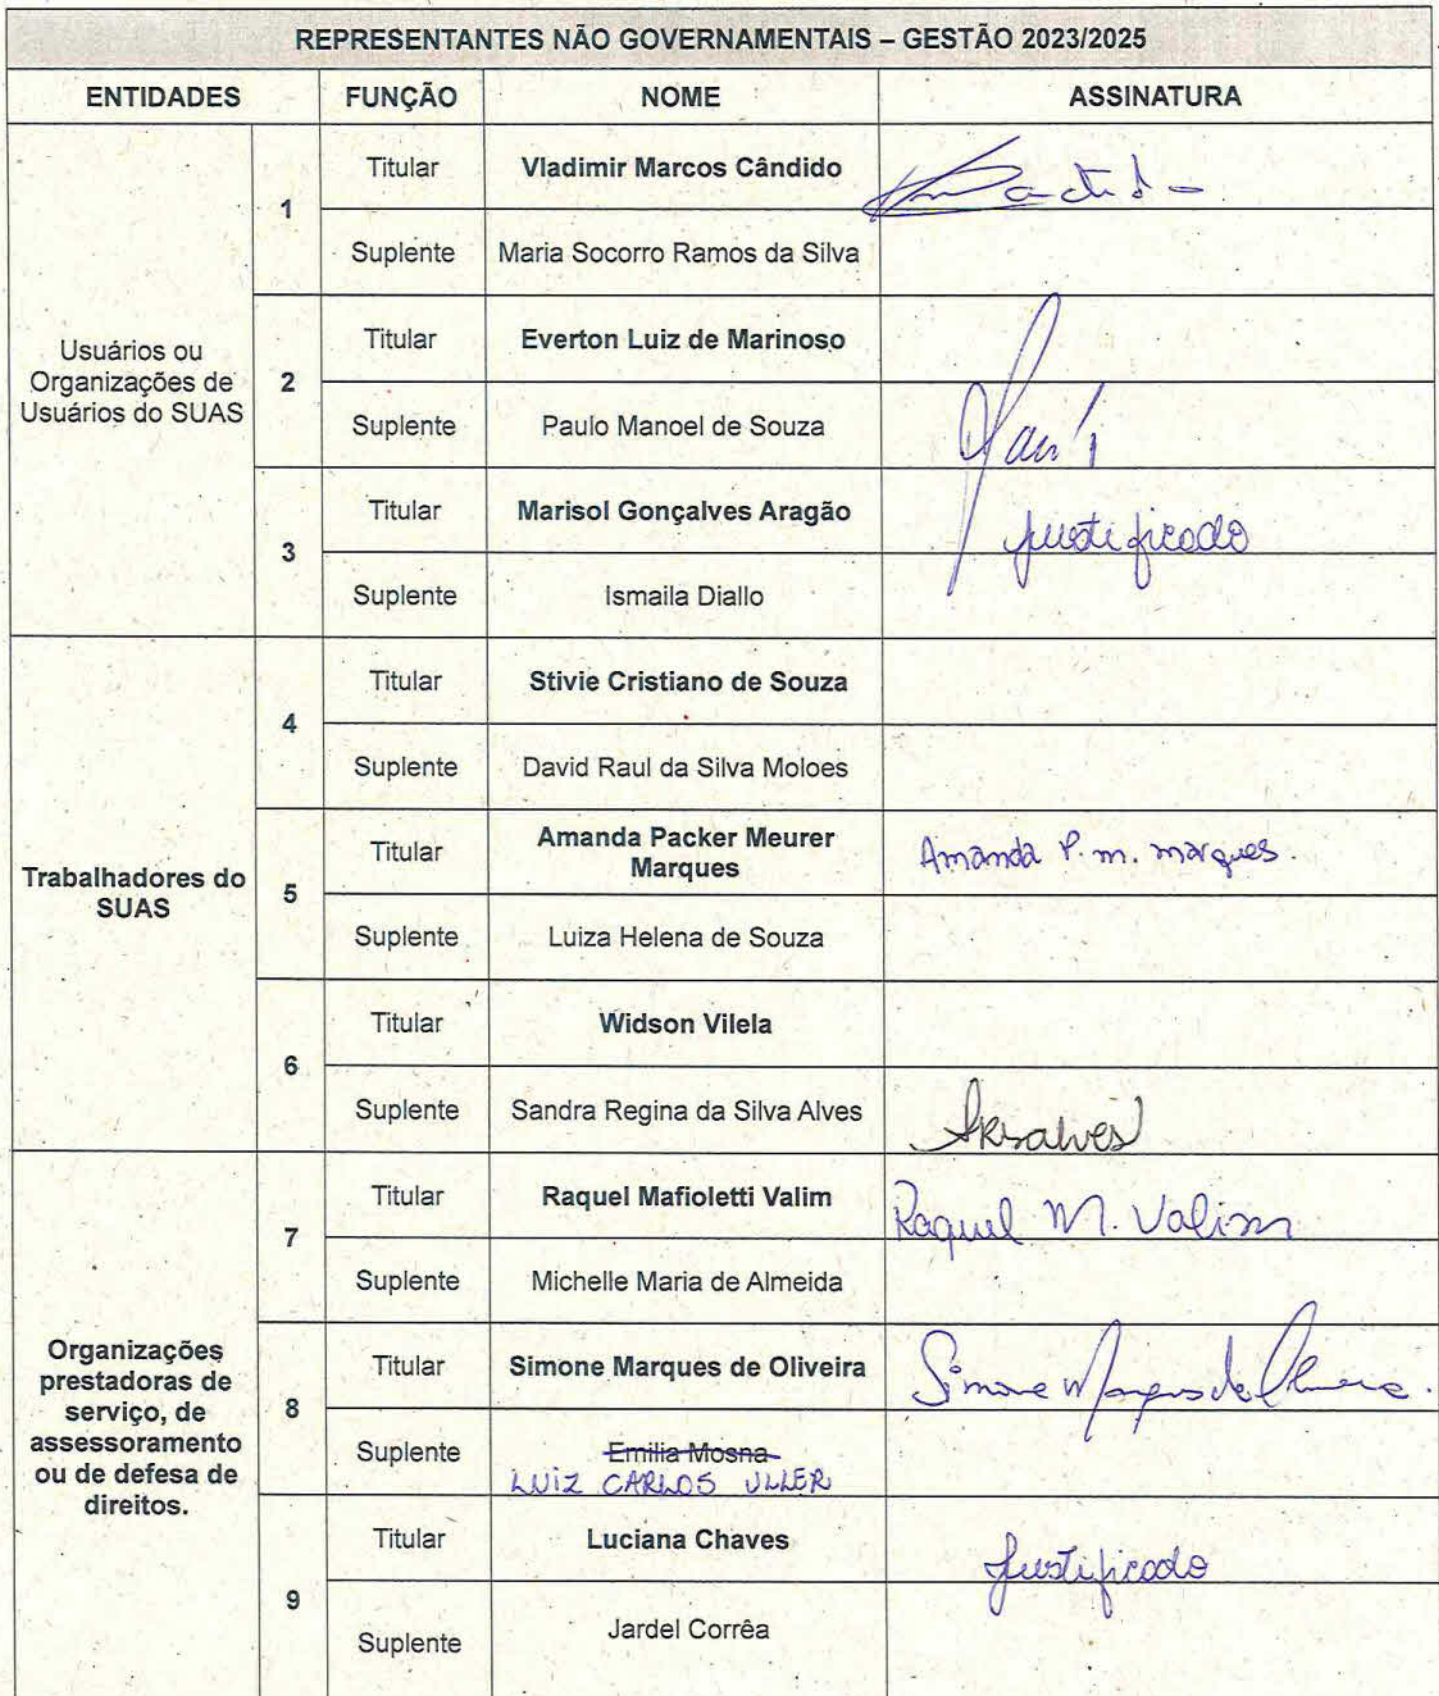 REPRESENTANTES NÃO GOVERNAMENTAIS – GESTÃO 2023/2025
ENTIDADES FUNÇÃO NOME ASSINATURA
Usuários ou
Organizações de
Usuários do SUAS
1
Titular Vladimir Marcos Cândido
Suplente Maria Socorro Ramos da Silva
2
Titular Everton Luiz de Marinoso
Suplente Paulo Manoel de Souza
3
Titular Marisol Gonçalves Aragão justificado
Suplente Ismaila Diallo
Trabalhadores do
SUAS
4
Titular Stivie Cristiano de Souza
Suplente David Raul da Silva Moloes
5
Titular Amanda Packer Meurer
Marques
Amanda P. m. marques.
Suplente Luiza Helena de Souza
6
Titular Widson Vilela
Suplente Sandra Regina da Silva Alves
Organizações
prestadoras de
serviço, de
assessoramento
ou de defesa de
direitos.
7
Titular Raquel Mafioletti Valim Raquel M. Valim
Suplente Michelle Maria de Almeida
8
Titular Simone Marques de Oliveira Simone Marques de Oliveira.
Suplente Emilia Mosna
LUIZ CARLOS ULLER
9
Titular Luciana Chaves Justificado
Suplente Jardel Corrêa